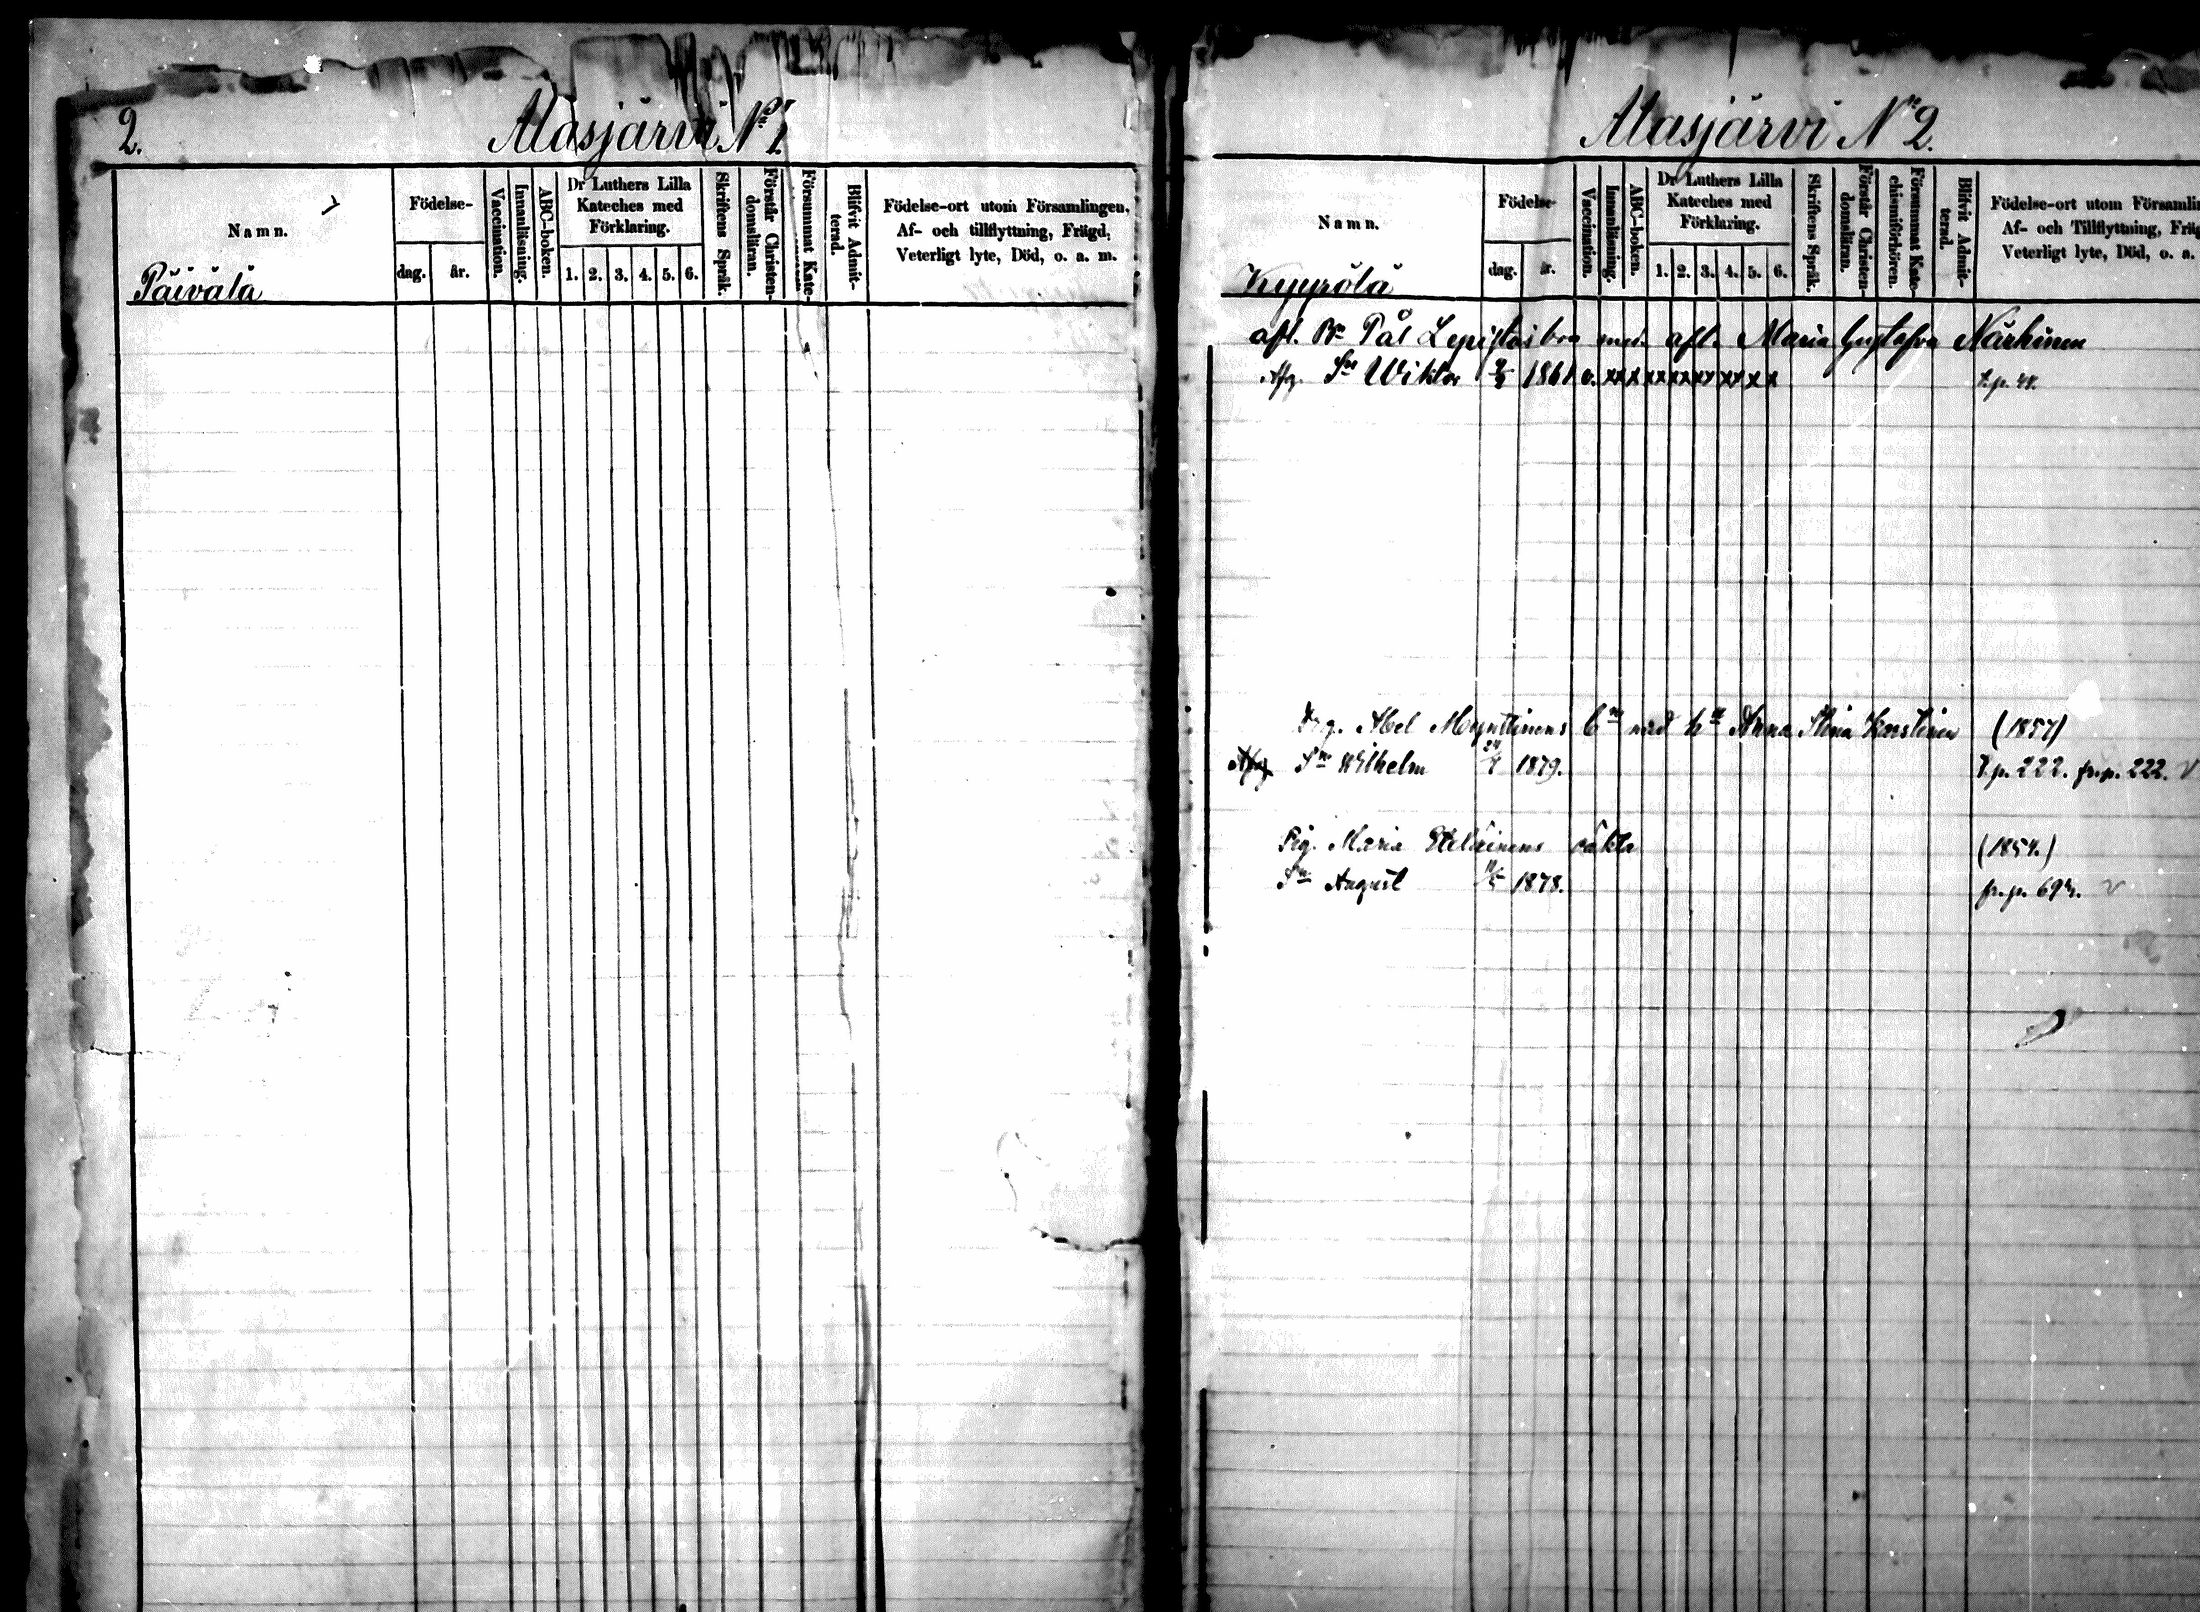 2.
Alasjärvi No 1.
Namn.
Födelse-
dag.
år.
Vaccination.
Innanläsning.
ABC-boken.
Dr Luthers Lilla
Kateches med
Förklaring.
1. 2. 3. 4. 5. 6.
Skriftens Språk.
Förstår Christen-
domsläran.
Försummat Kate-
Blifvit Admit-
terad.
Födelse-ort utom Församlingen.
Af- och tillflyttning, Frägd,
Veterligt lyte, Död, o. a. m.
Päivälä
Alasjärvi No 2.
Namn.
Födelse-
dag.
år.
Vaccination.
Innanläsning.
ABC-boken.
Dr Luthers Lilla
Kateches med
Förklaring.
1. 2. 3. 4. 5. 6.
Skriftens Språk.
Förstår Christen-
domsläran.
Försummat Kate-
chismiförhören.
Blifvit Admit-
terad.
Födelse-ort utom Församlin
Af- och Tillflyttning, Fräg
Veterligt lyte, Död, o. a.
Kyyrölä
afl. Bn Pål Lepistöi brn med afl. Maria Gustafva Närhinen
Afg. Sn Wiktor 1861 v. x x x x x x x x x x T.p. 41.
Abel Myntlinens bn med h Anna Stina Korstinen (1857)
Afg. Sn Wilhelm 24/4 1879. T.p. 222. fr.p. 222. v
Pig. Maria Eteläinens oäkta (1854.)
Sn August 1878. fr.p. 694. v